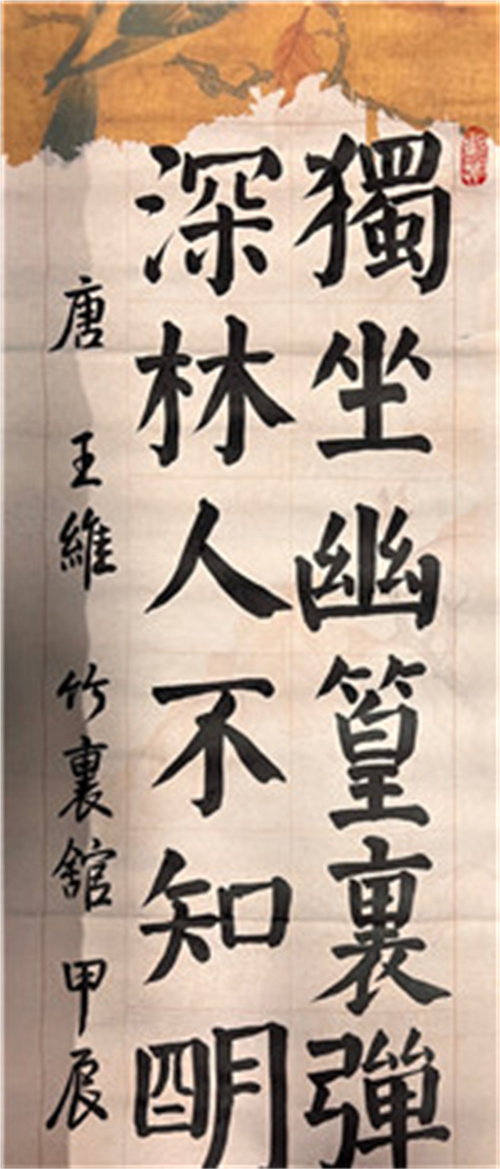 獨坐幽篁裏彈
深林人不知明
唐 王維 竹裏館 甲辰